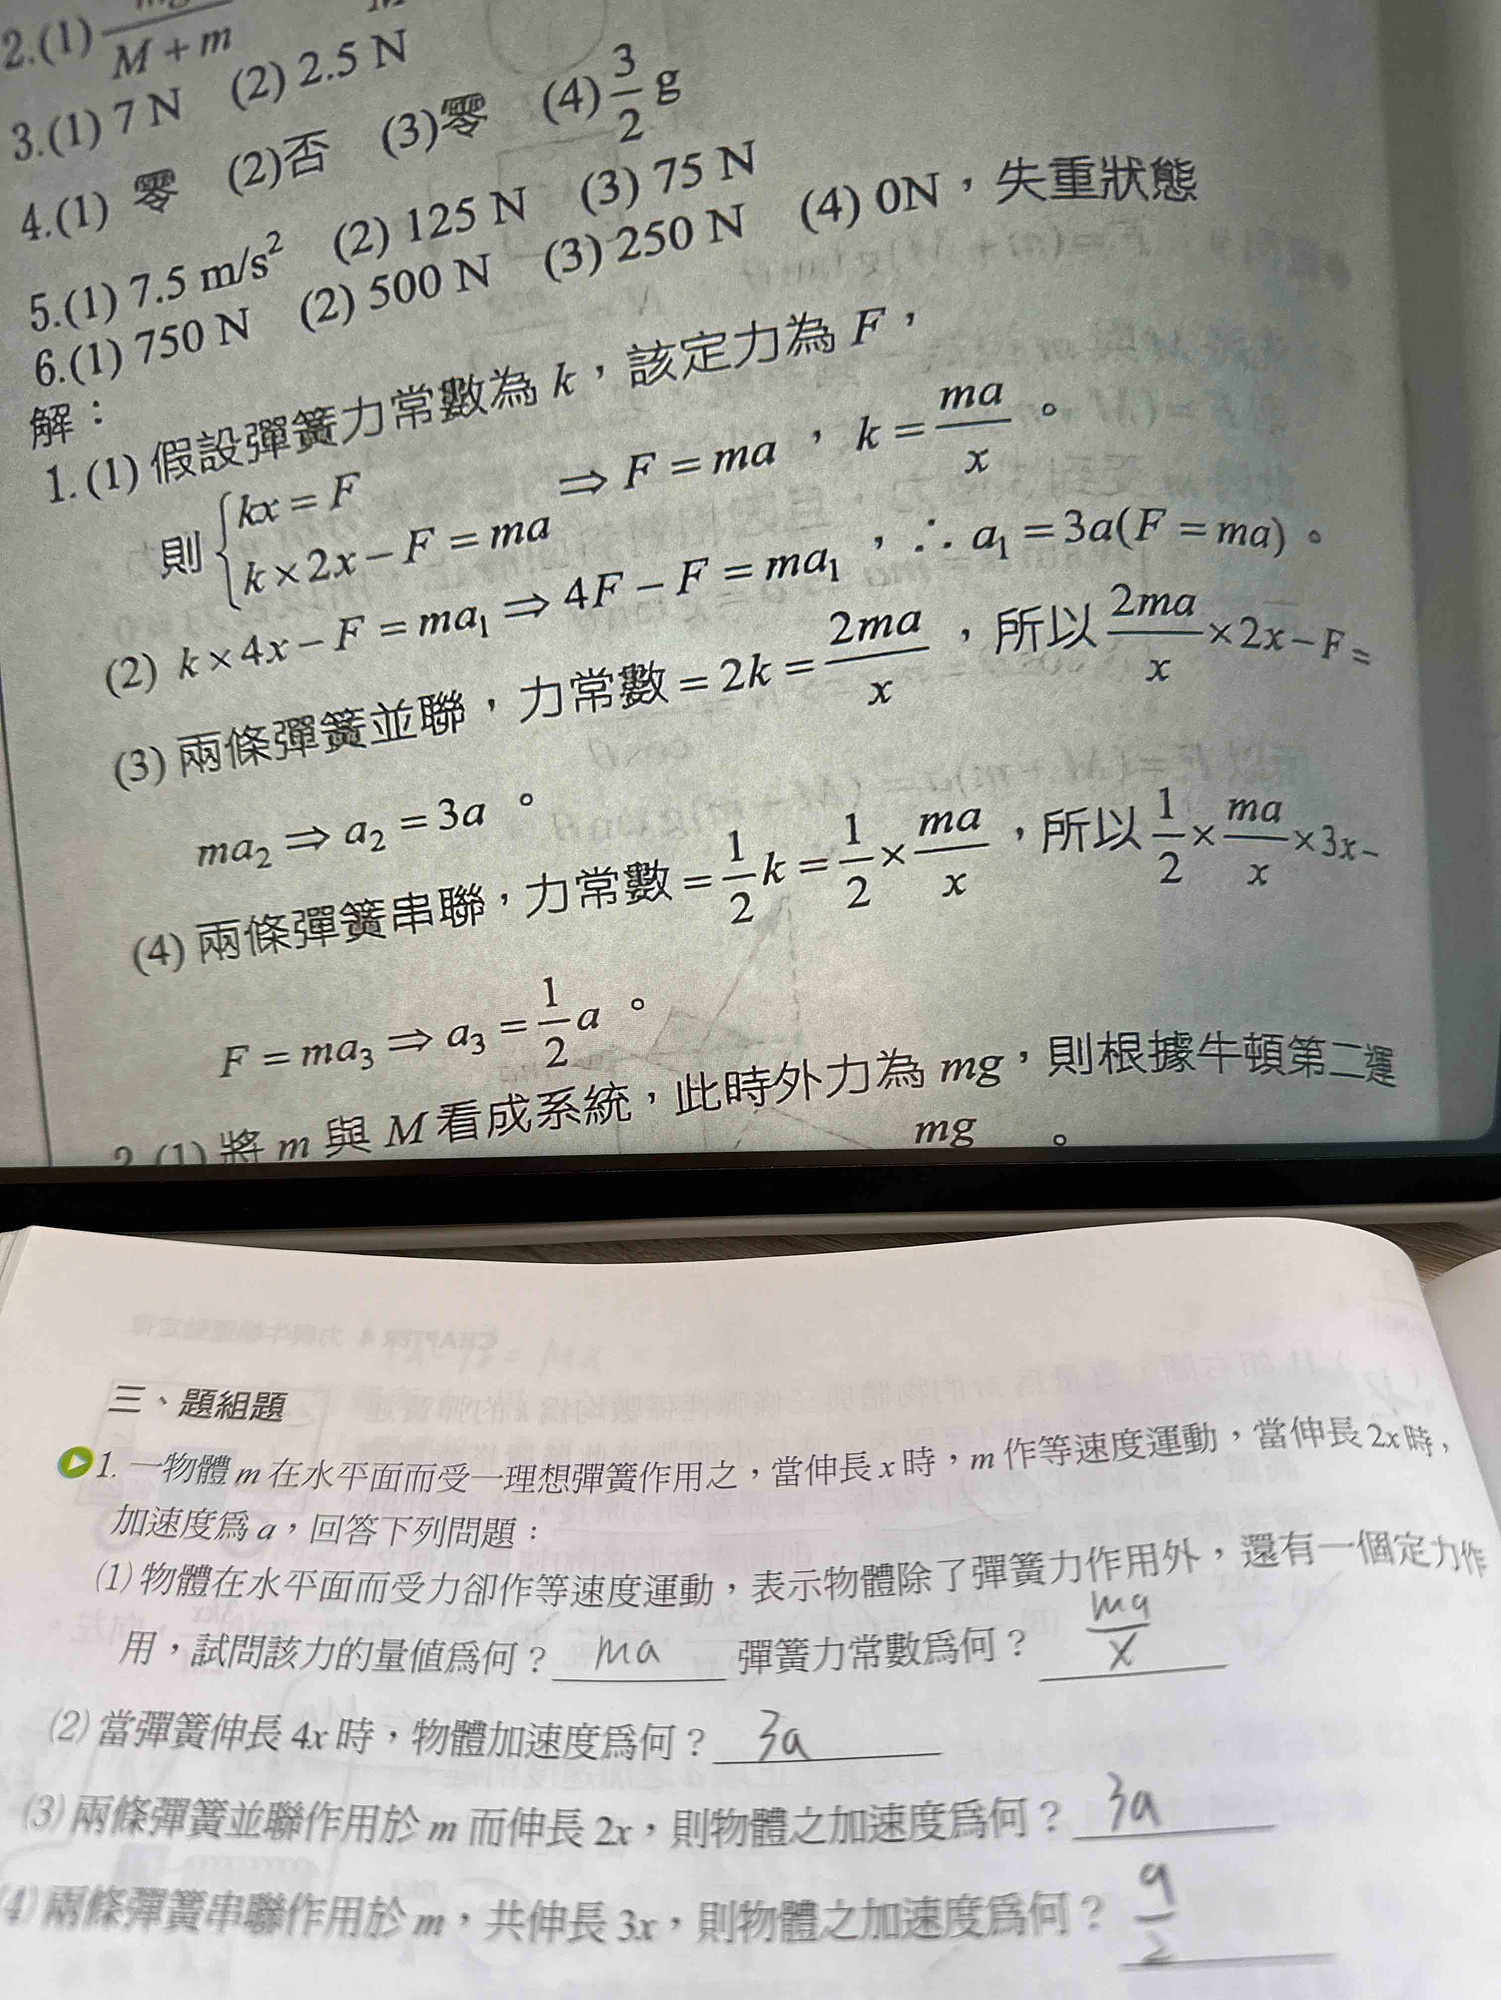 2.(1) mg/(M+m)
3.(1) 7 N (2) 2.5 N
4.(1) 零 (2)否 (3)零 (4) 3/2 g
5.(1) 7.5 m/s² (2) 125 N (3) 75 N
6.(1) 750 N (2) 500 N (3) 250 N (4) 0N，失重狀態
解：
1. (1) 假設彈簧力常數為 k，該定力為 F，
則 { kx = F
k × 2x − F = ma ⇒ F = ma，k = ma/x。
(2) k × 4x − F = ma₁ ⇒ 4F − F = ma₁，∴ a₁ = 3a(F = ma)。
(3) 兩條彈簧並聯，力常數 = 2k = 2ma/x，所以 2ma/x × 2x − F =
ma₂ ⇒ a₂ = 3a。
(4) 兩條彈簧串聯，力常數 = 1/2 k = 1/2 × ma/x，所以 1/2 × ma/x × 3x −
F = ma₃ ⇒ a₃ = 1/2 a。
2.(1) 將 m 與 M 看成系統，此時外力為 mg，則根據牛頓第二運
mg 。
三、題組題
1. 一物體 m 在水平面而受一理想彈簧作用之，當伸長 x 時，m 作等速度運動，當伸長 2x 時，
加速度爲 a，回答下列問題：
(1) 物體在水平面而受力卻作等速度運動，表示物體除了彈簧力作用外，還有一個定力作
用，試問該力的量值爲何？ ma 彈簧力常數爲何？ ma/x
(2) 當彈簧伸長 4x 時，物體加速度爲何？ 3a
(3) 兩條彈簧並聯作用於 m 而伸長 2x，則物體之加速度爲何？ 3a
(4) 兩條彈簧串聯作用於 m，共伸長 3x，則物體之加速度爲何？ a/2